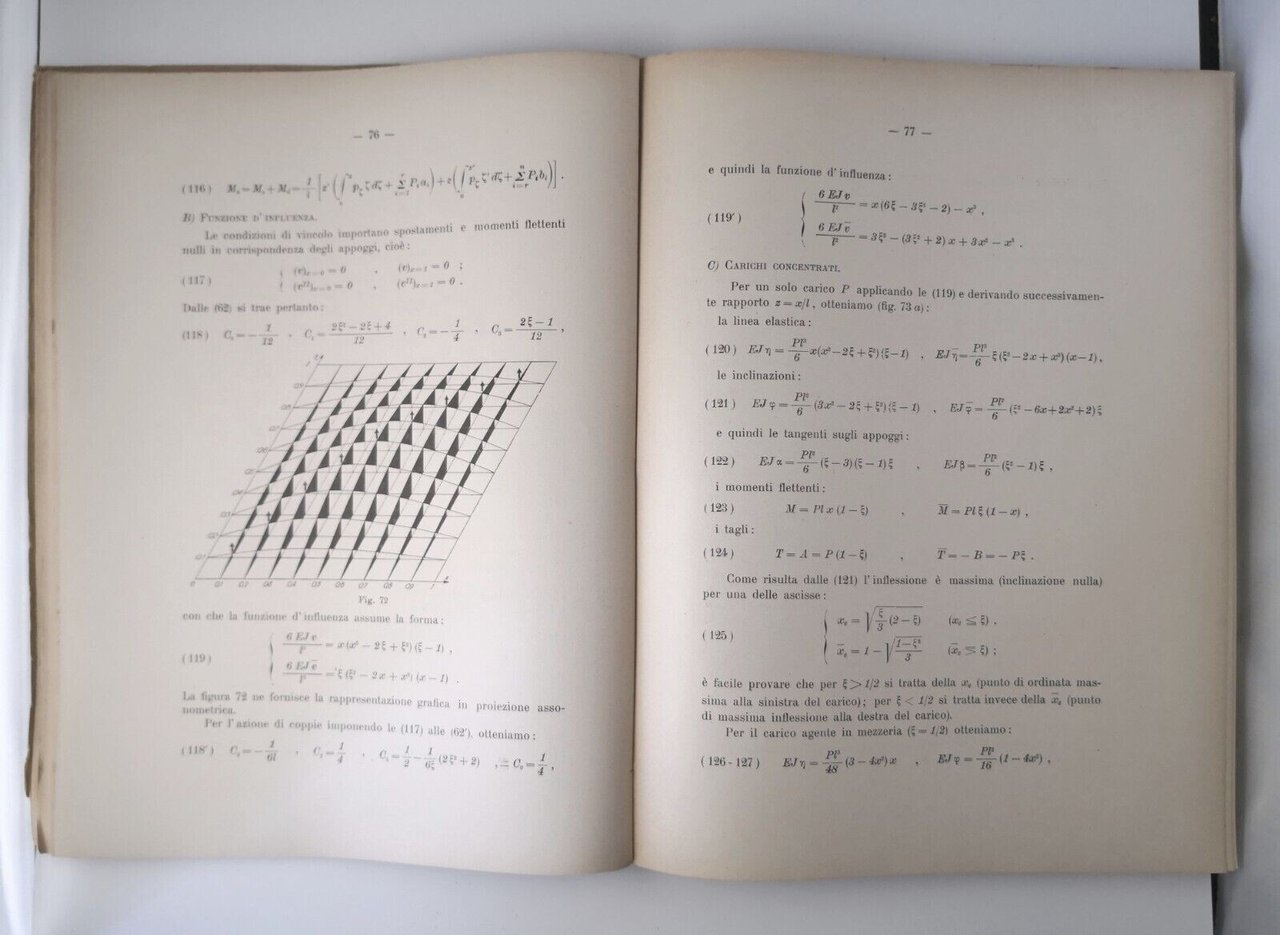 — 76 —
(116) Mₓ = Mₛ + M_d = 1/l [x' (∫ p_ζ ζ dζ + Σ Pᵢ aᵢ) + x (∫ p_ζ ζ' dζ + Σ Pᵢ bᵢ)] .
B) FUNZIONE D' INFLUENZA.
Le condizioni di vincolo importano spostamenti e momenti flettenti
nulli in corrispondenza degli appoggi, cioè:
(117) (v)ₓ₌₀ = 0 , (v)ₓ₌₁ = 0 ;
(vᴵᴵ)ₓ₌₀ = 0 , (vᴵᴵ)ₓ₌₁ = 0 .
Dalle (62) si trae pertanto:
(118) = − 1/12 , = (2ξ² − 2ξ + 4)/12 , = − 1/4 , = (2ξ − 1)/12 ,
0 0.1 0.2 0.3 0.4 0.5 0.6 0.7 0.8 0.9 1 x
Fig. 72
con che la funzione d' influenza assume la forma:
(119) 6 EJ v / l³ = x (x² − 2ξ + ξ²) (ξ − 1) ,
6 EJ v̄ / l³ = ξ (ξ² − 2x + x²) (x − 1) .
La figura 72 ne fornisce la rappresentazione grafica in proiezione asso-
nometrica.
Per l' azione di coppie imponendo le (117) alle (62'), otteniamo:
(118') = − 1/6l , = 1/4 , = 1/2 − 1/6ξ (2ξ² + 2) , = 1/4 ,
— 77 —
e quindi la funzione d' influenza:
(119') 6 EJ v / l² = x (6ξ − 3ξ² − 2) − x³ ,
6 EJ v̄ / l² = 3ξ² − (3ξ² + 2) x + 3x² − x³ .
C) CARICHI CONCENTRATI.
Per un solo carico P applicando le (119) e derivando successivamen-
te rapporto z = x/l , otteniamo (fig. 73 a):
la linea elastica:
(120) EJ η = Pl³/6 x(x² − 2ξ + ξ²) (ξ − 1) , EJ η̄ = Pl³/6 ξ (ξ² − 2x + x²) (x − 1) ,
le inclinazioni:
(121) EJ φ = Pl²/6 (3x² − 2ξ + ξ²) (ξ − 1) , EJ φ̄ = Pl²/6 (ξ² − 6x + 2x² + 2) ξ
e quindi le tangenti sugli appoggi:
(122) EJ α = Pl²/6 (ξ − 3) (ξ − 1) ξ , EJ β = Pl²/6 (ξ² − 1) ξ ,
i momenti flettenti:
(123) M = Pl x (1 − ξ) , M̄ = Pl ξ (1 − x) ,
i tagli:
(124) T = A = P (1 − ξ) , T̄ = − B = − Pξ .
Come risulta dalle (121) l' inflessione è massima (inclinazione nulla)
per una delle ascisse:
(125) xₑ = √(ξ/3 (2 − ξ)) (xₑ ≤ ξ) ,
x̄ₑ = 1 − √((1 − ξ²)/3) (x̄ₑ ≥ ξ) ;
è facile provare che per ξ > 1/2 si tratta della xₑ (punto di ordinata mas-
sima alla sinistra del carico); per ξ < 1/2 si tratta invece della x̄ₑ (punto
di massima inflessione alla destra del carico).
Per il carico agente in mezzeria (ξ = 1/2) otteniamo:
(126 - 127) EJ η = Pl³/48 (3 − 4x²) x , EJ φ = Pl²/16 (1 − 4x²) ,